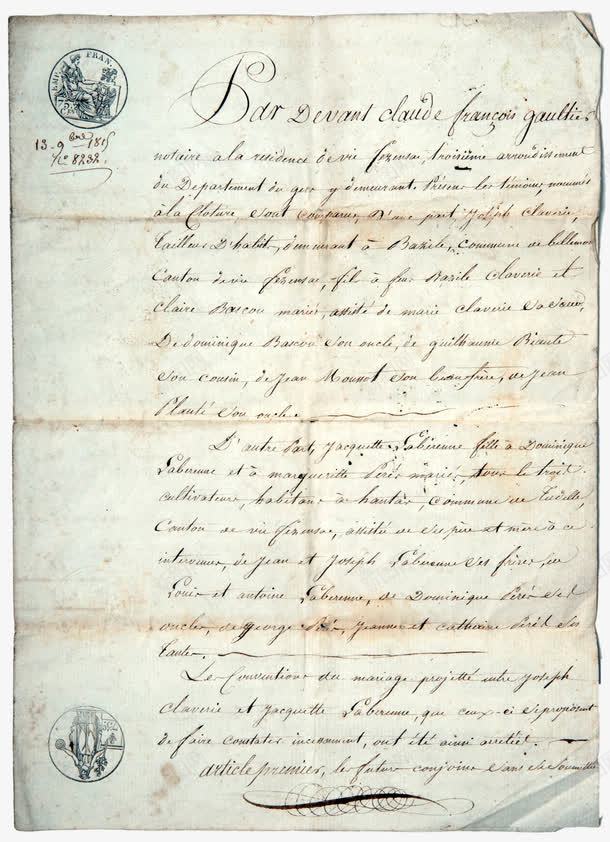 TIMB
FRAN.
75
13 9bre 1815
N° 8232.
Par Devant claude françois gaultier
notaire a la residence de vic fezensac, troisième arrondissement
du Departement du gers y demeurant. Présens les témoins nommés
à la Cloture, sont comparus, D'une part, Joseph Claverie,
Tailleur D'habit, demeurant à Bazile, commune de bellemon
Canton de vic fezensac, fils à feu Bazile Claverie et
Claire Bascou mariés, assisté de marie claverie sa soeur,
De dominique Bascou son oncle, de guilhaume Béaute
son cousin, de Jean Mounot son beau frère, de Jean
Planté son oncle.
D'autre Part, Jacquette Laberenne fille à Dominique
Laberenne et à margueritte Perés mariés, tous le trois
cultivateurs, habitans à hantas, commune de Tudelle,
Canton de vic fezensac, assistée de ses père et mère à ce
intervenus, de Jean et Joseph Laberenne ses frères, de
Louis et antoine Laberenne, de Dominique Perés ses
oncles, de george Perés, Jeanne et catherine Perés ses
tantes.
Les Conventions du mariage projetté entre Joseph
Claverie et Jacquette Laberenne, que ceux-ci se proposent
de faire constater incessament, ont été ainsi arretté.
article premier, les futurs conjoins sans se soumettre